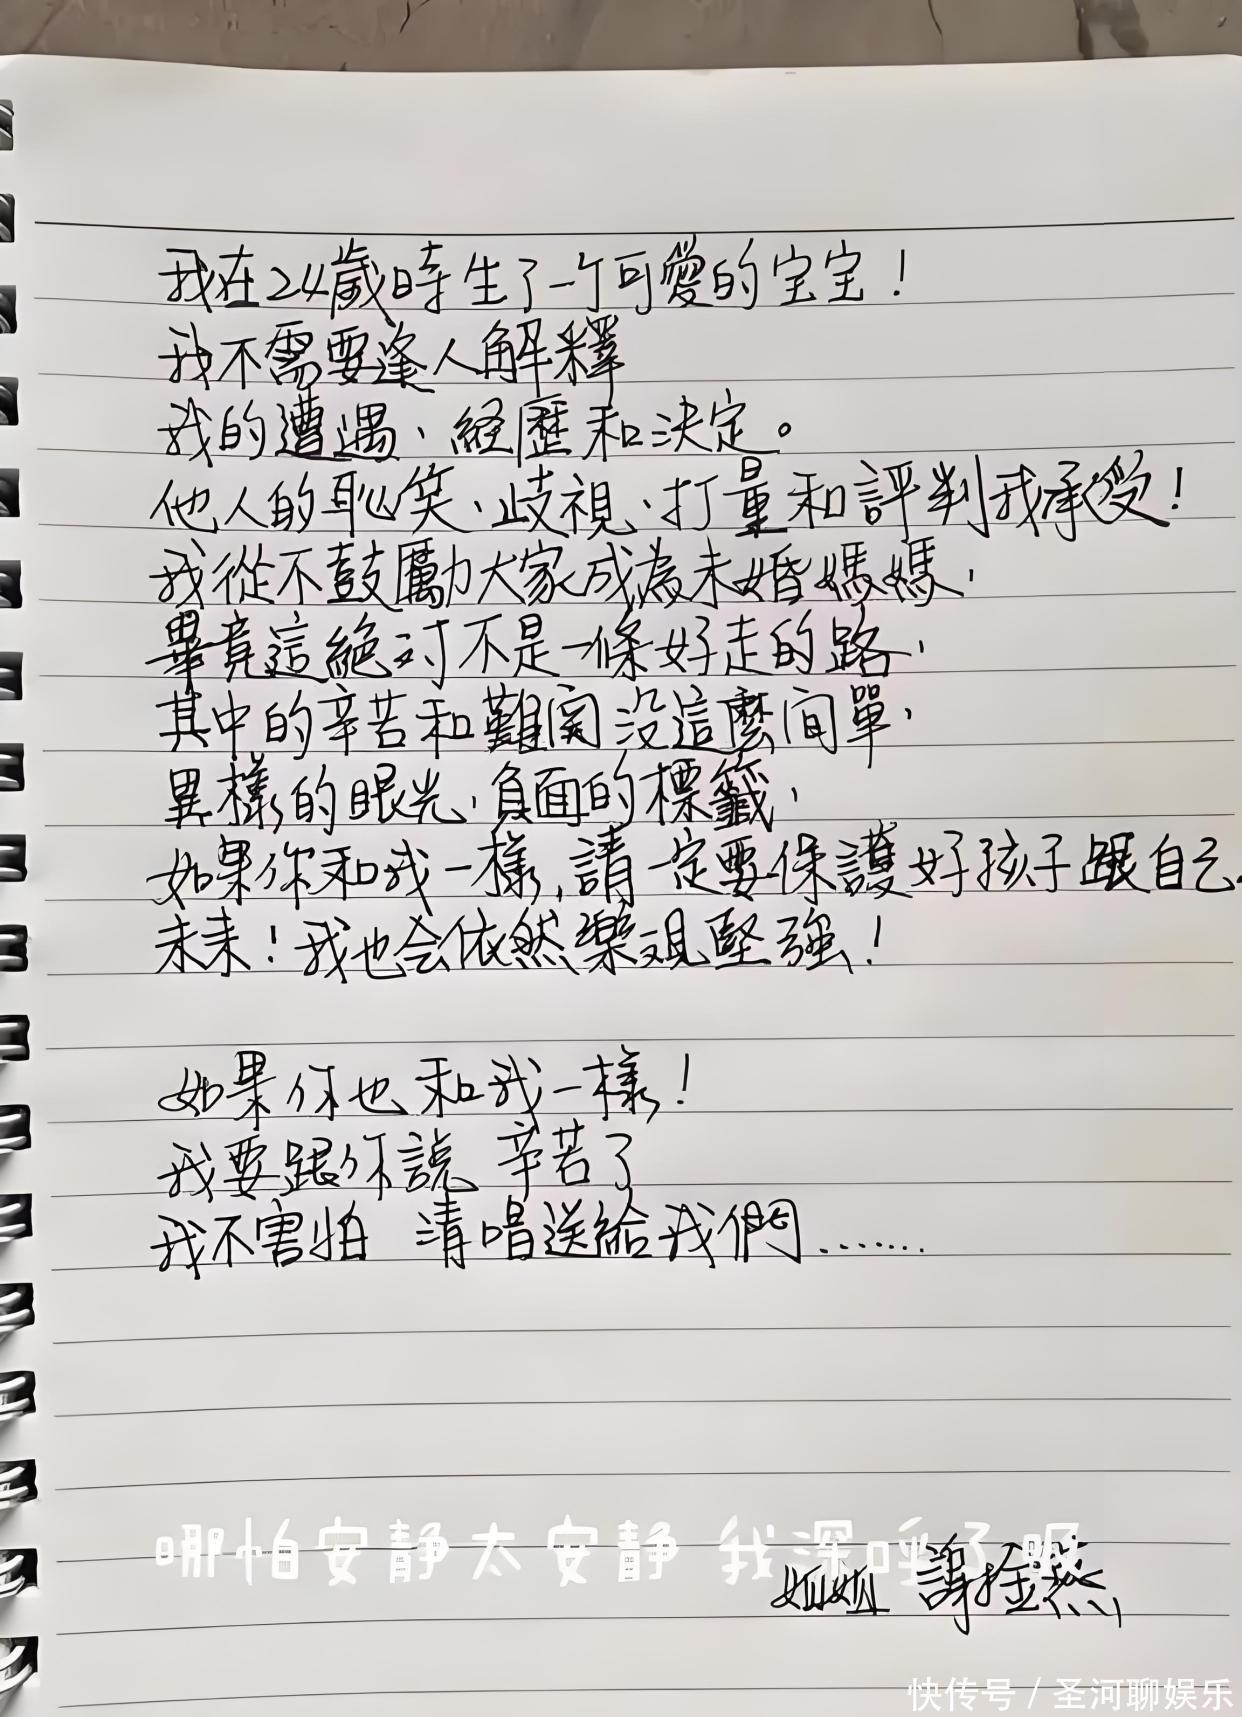 我在24歲時生了一个可愛的宝宝！
我不需要逢人解釋
我的遭遇、経歷和决定。
他人的耻笑、歧視、打量和評判我承受！
我從不鼓勵大家成為未婚媽媽，
畢竟這絶対不是一條好走的路，
其中的辛苦和難関没這麼简單，
異樣的眼光，負面的標籤，
如果你和我一樣，請一定要保護好孩子跟自己。
未来！我也会依然樂观堅强！
如果你也和我一樣！
我要跟你說 辛苦了
我不害怕 清唱送給我們.......
哪怕安静太安静 我深呼了
姐姐 謝燕
快传号/圣河聊娱乐